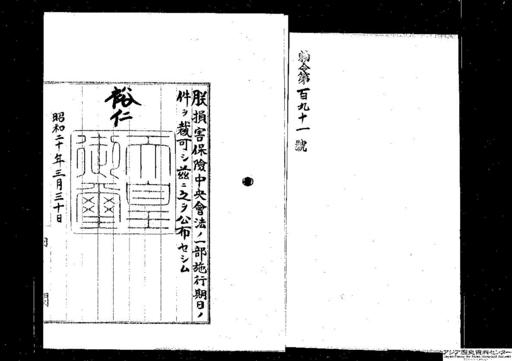 勅令第百九十一號
朕損害保險中央會法ノ一部施行期日ノ
件ヲ裁可シ茲ニ之ヲ公布セシム
裕仁
天皇
御璽
昭和二十年三月三十日
アジア歴史資料センター